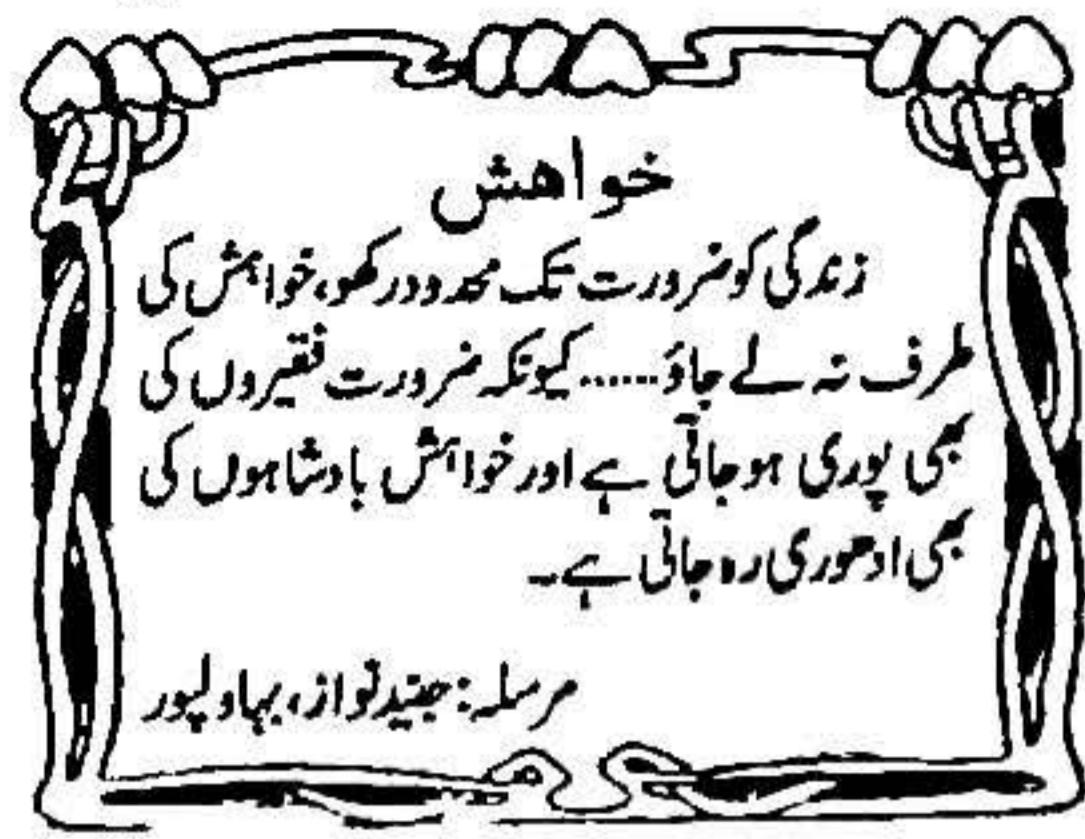 خواهش
زندگی کو ضرورت تک محدود رکھو، خواہش کی
طرف نہ لے جاؤ...... کیونکہ ضرورت فقیروں کی
بھی پوری ہو جاتی ہے اور خواہش بادشاہوں کی
بھی ادھوری رہ جاتی ہے۔
مرسلہ: جنید نواز، بہاولپور